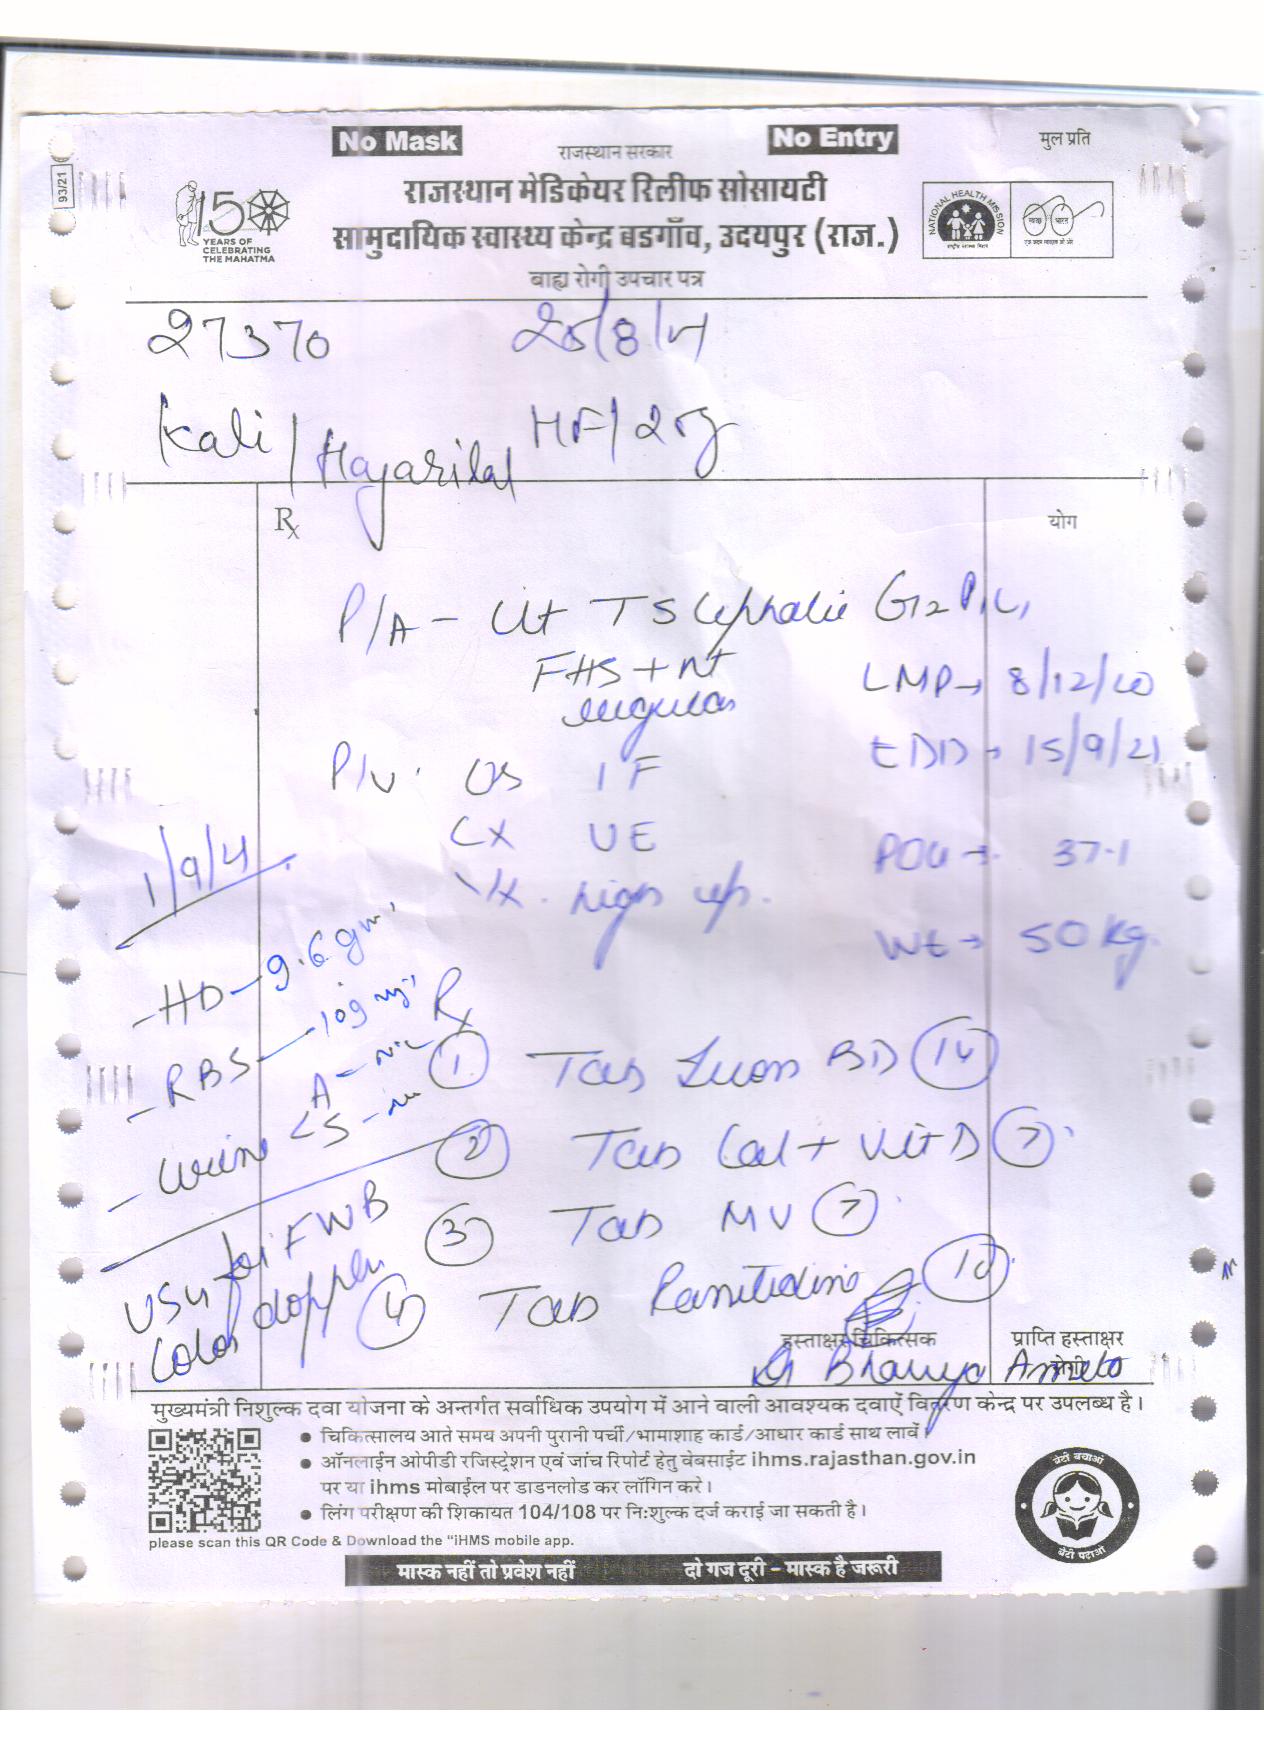 No Mask
No Entry
राजस्थान सरकार
मुल प्रति
93/21
राजस्थान मेडिकेयर रिलीफ सोसायटी
150
YEARS OF
CELEBRATING
THE MAHATMA
सामुदायिक स्वास्थ्य केन्द्र बडगाँव, उदयपुर (राज.)
NATIONAL HEALTH MISSION
स्वच्छ भारत
बाह्य रोगी उपचार पत्र
27370
Kali / Hajarilal
Rx
योग
P/A - Ut TS Cephalic G2P1L1
FHS + nt
regular
LMP → 8/12/20
EDD → 15/9/21
P/V. OS 1F
CX UE
high up.
POG → 37.1
Wt → 50 kg.
- HB - 9.6 gm
- RBS - 109
- Urine A - nil
S - nil
Rx
① Tab BD
② Tab Cal + Vit D ⑦
③ Tab MV ⑦
④ Tab Ranitidine ⑩
USG for FWB
Color doppler
हस्ताक्षर चिकित्सक
प्राप्ति हस्ताक्षर
Dr Bhavya
रोगी
मुख्यमंत्री निशुल्क दवा योजना के अन्तर्गत सर्वाधिक उपयोग में आने वाली आवश्यक दवाएँ वितरण केन्द्र पर उपलब्ध है।
● चिकित्सालय आते समय अपनी पुरानी पर्ची/भामाशाह कार्ड/आधार कार्ड साथ लावें।
● ऑनलाईन ओपीडी रजिस्ट्रेशन एवं जांच रिपोर्ट हेतु वेबसाईट ihms.rajasthan.gov.in
पर या ihms मोबाईल पर डाडनलोड कर लॉगिन करे।
● लिंग परीक्षण की शिकायत 104/108 पर निःशुल्क दर्ज कराई जा सकती है।
please scan this QR Code & Download the "iHMS mobile app.
बेटी बचाओ
बेटी पढाओ
मास्क नहीं तो प्रवेश नहीं
दो गज दूरी – मास्क है जरूरी